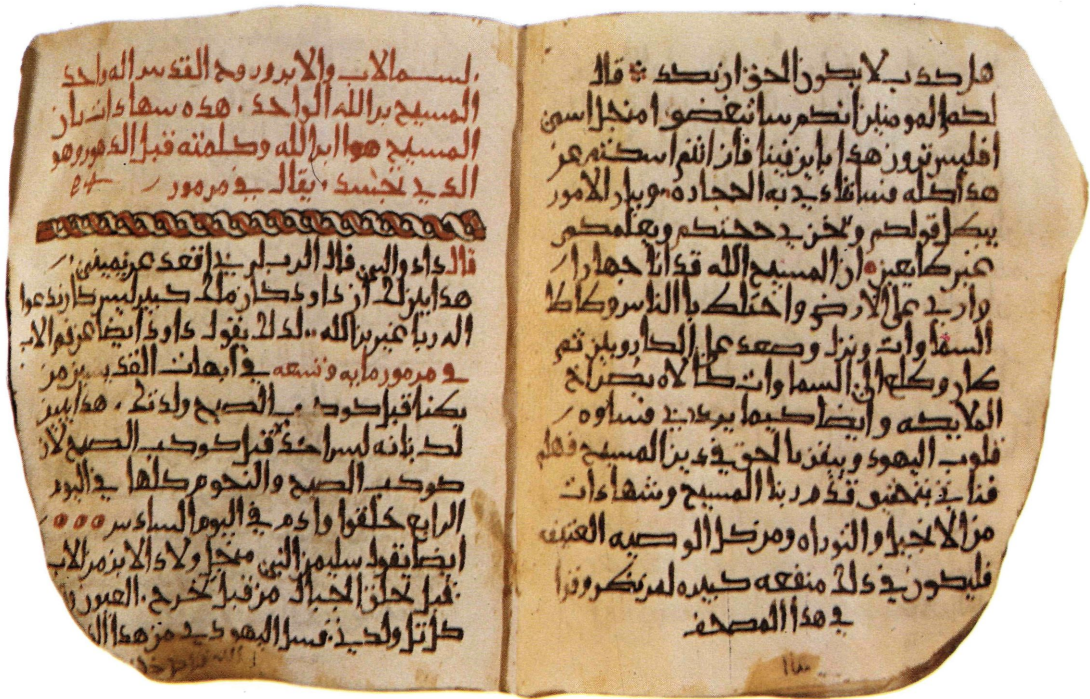 هل كدب لا يكون الحق ان قال
لكم المومنين انكم ستبغضو امنجل اسمي
افليس ترون هدا باين فينا فان انتم اسكتم عن
هدا كله به الحجاره وبيان الامور
يبطل قولكم ونخزي حجتكم ويعلمكم
غير طايعين ان المسيح الله قد اتا جهارا
واري على الارض واختلط بالناس وطاطا
السماوات ونزل وصعد على الكاروبين ثم
طار وطلع الى السماوات كالاه بصراخ
الملايكه وايضا كيما قساوه
قلوب اليهود ويبين بالحق في دين المسيح فهلم
فناتي بتحقيق قدم ربنا المسيح وشهادات
من الانجيل والتوراه ومن كل الوصيه العتيقه
فليكون في دلك منفعه كبيره لمن وقرا
في هدا المصحف
بسم الاب والابن وروح القدس اله واحد
المسيح بن الله الواحد . هده شهادات بان
المسيح هو ابن الله وكلمته قبل الدهور وهو
الدي تجسد . يقال في مزمور
قال داود النبي قال الرب لربي اقعد عن يميني
هدا بين لك ان داود كان ملك كبير ليس كان يدعوا
اله ربا غير بن الله .. لدلك يقول داود ايضا عن فم الاب
في مزمور مايه وتسعه في ابهات القديسين من
بطنا قبل كوكب الصبح ولدتك . هدا يبين
لك بانه ليس احد قبل كوكب الصبح لان
كوكب الصبح والنجوم كلها في اليوم
الرابع خلقوا وادم في اليوم السادس
ايضا يقول سليمن النبي منجل ولاد الابن من الاب
قبل تخلق الجبال من قبل تخرج . العيون
كل تل ولدني . فسل اليهودي من هدا